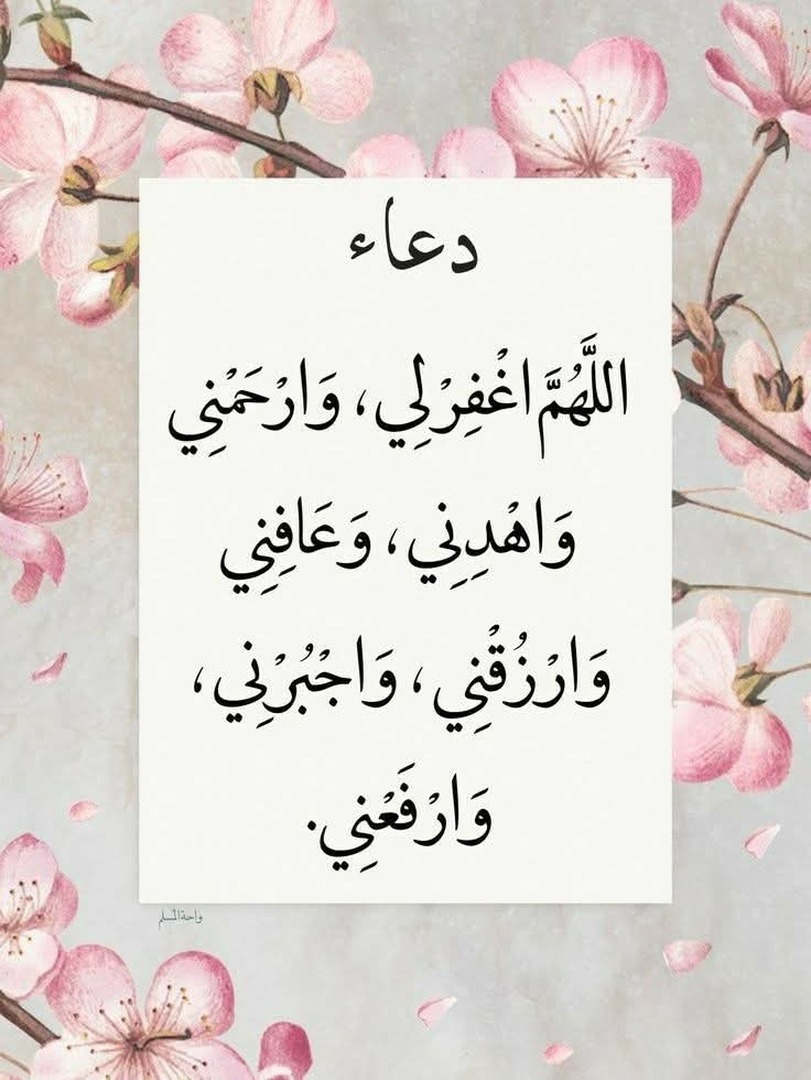 دعاء
اللَّهُمَّ اغْفِرْ لِي، وَارْحَمْنِي
وَاهْدِنِي، وَعَافِنِي
وَارْزُقْنِي، وَاجْبُرْنِي،
وَارْفَعْنِي.
واحة المسلم